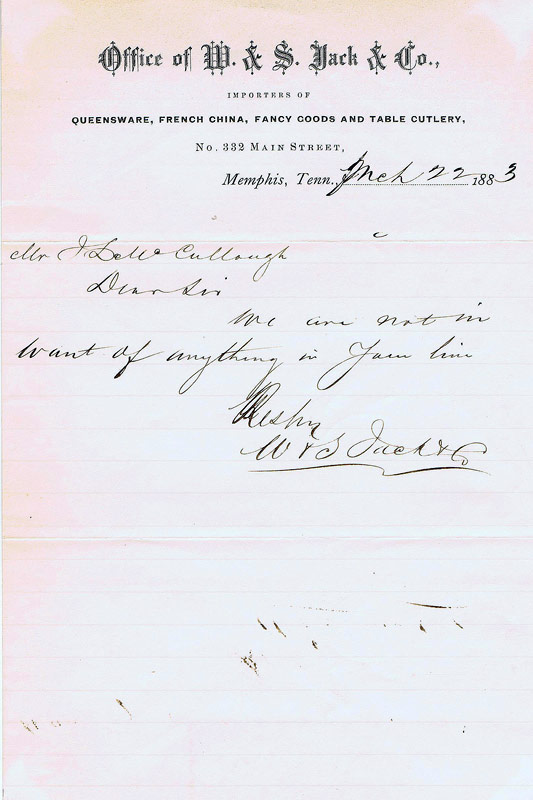 Office of W. & S. Jack & Co.,
IMPORTERS OF
QUEENSWARE, FRENCH CHINA, FANCY GOODS AND TABLE CUTLERY,
No. 332 Main Street,
Memphis, Tenn., Mch 22 1883
Mr J L McCullough
Dear Sir
We are not in
want of anything in Your line
Respy
W & S Jack & Co